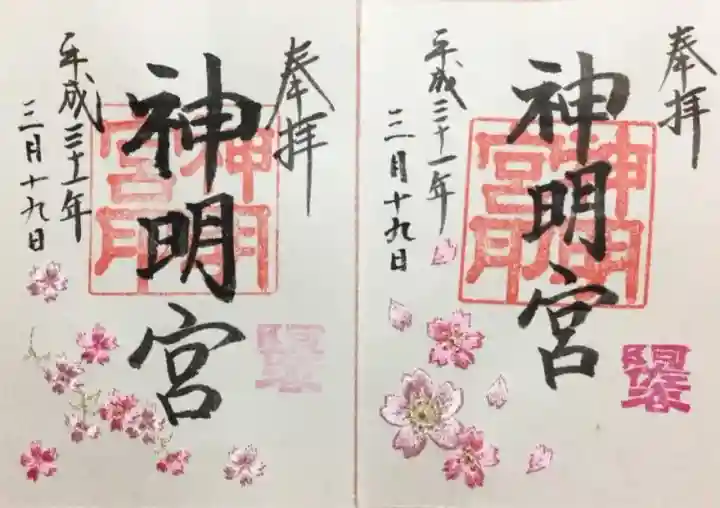 奉拝
神明宮
神明宮印
平成三十一年
三月十九日
奉拝
神明宮
神明宮印
平成三十一年
三月十九日